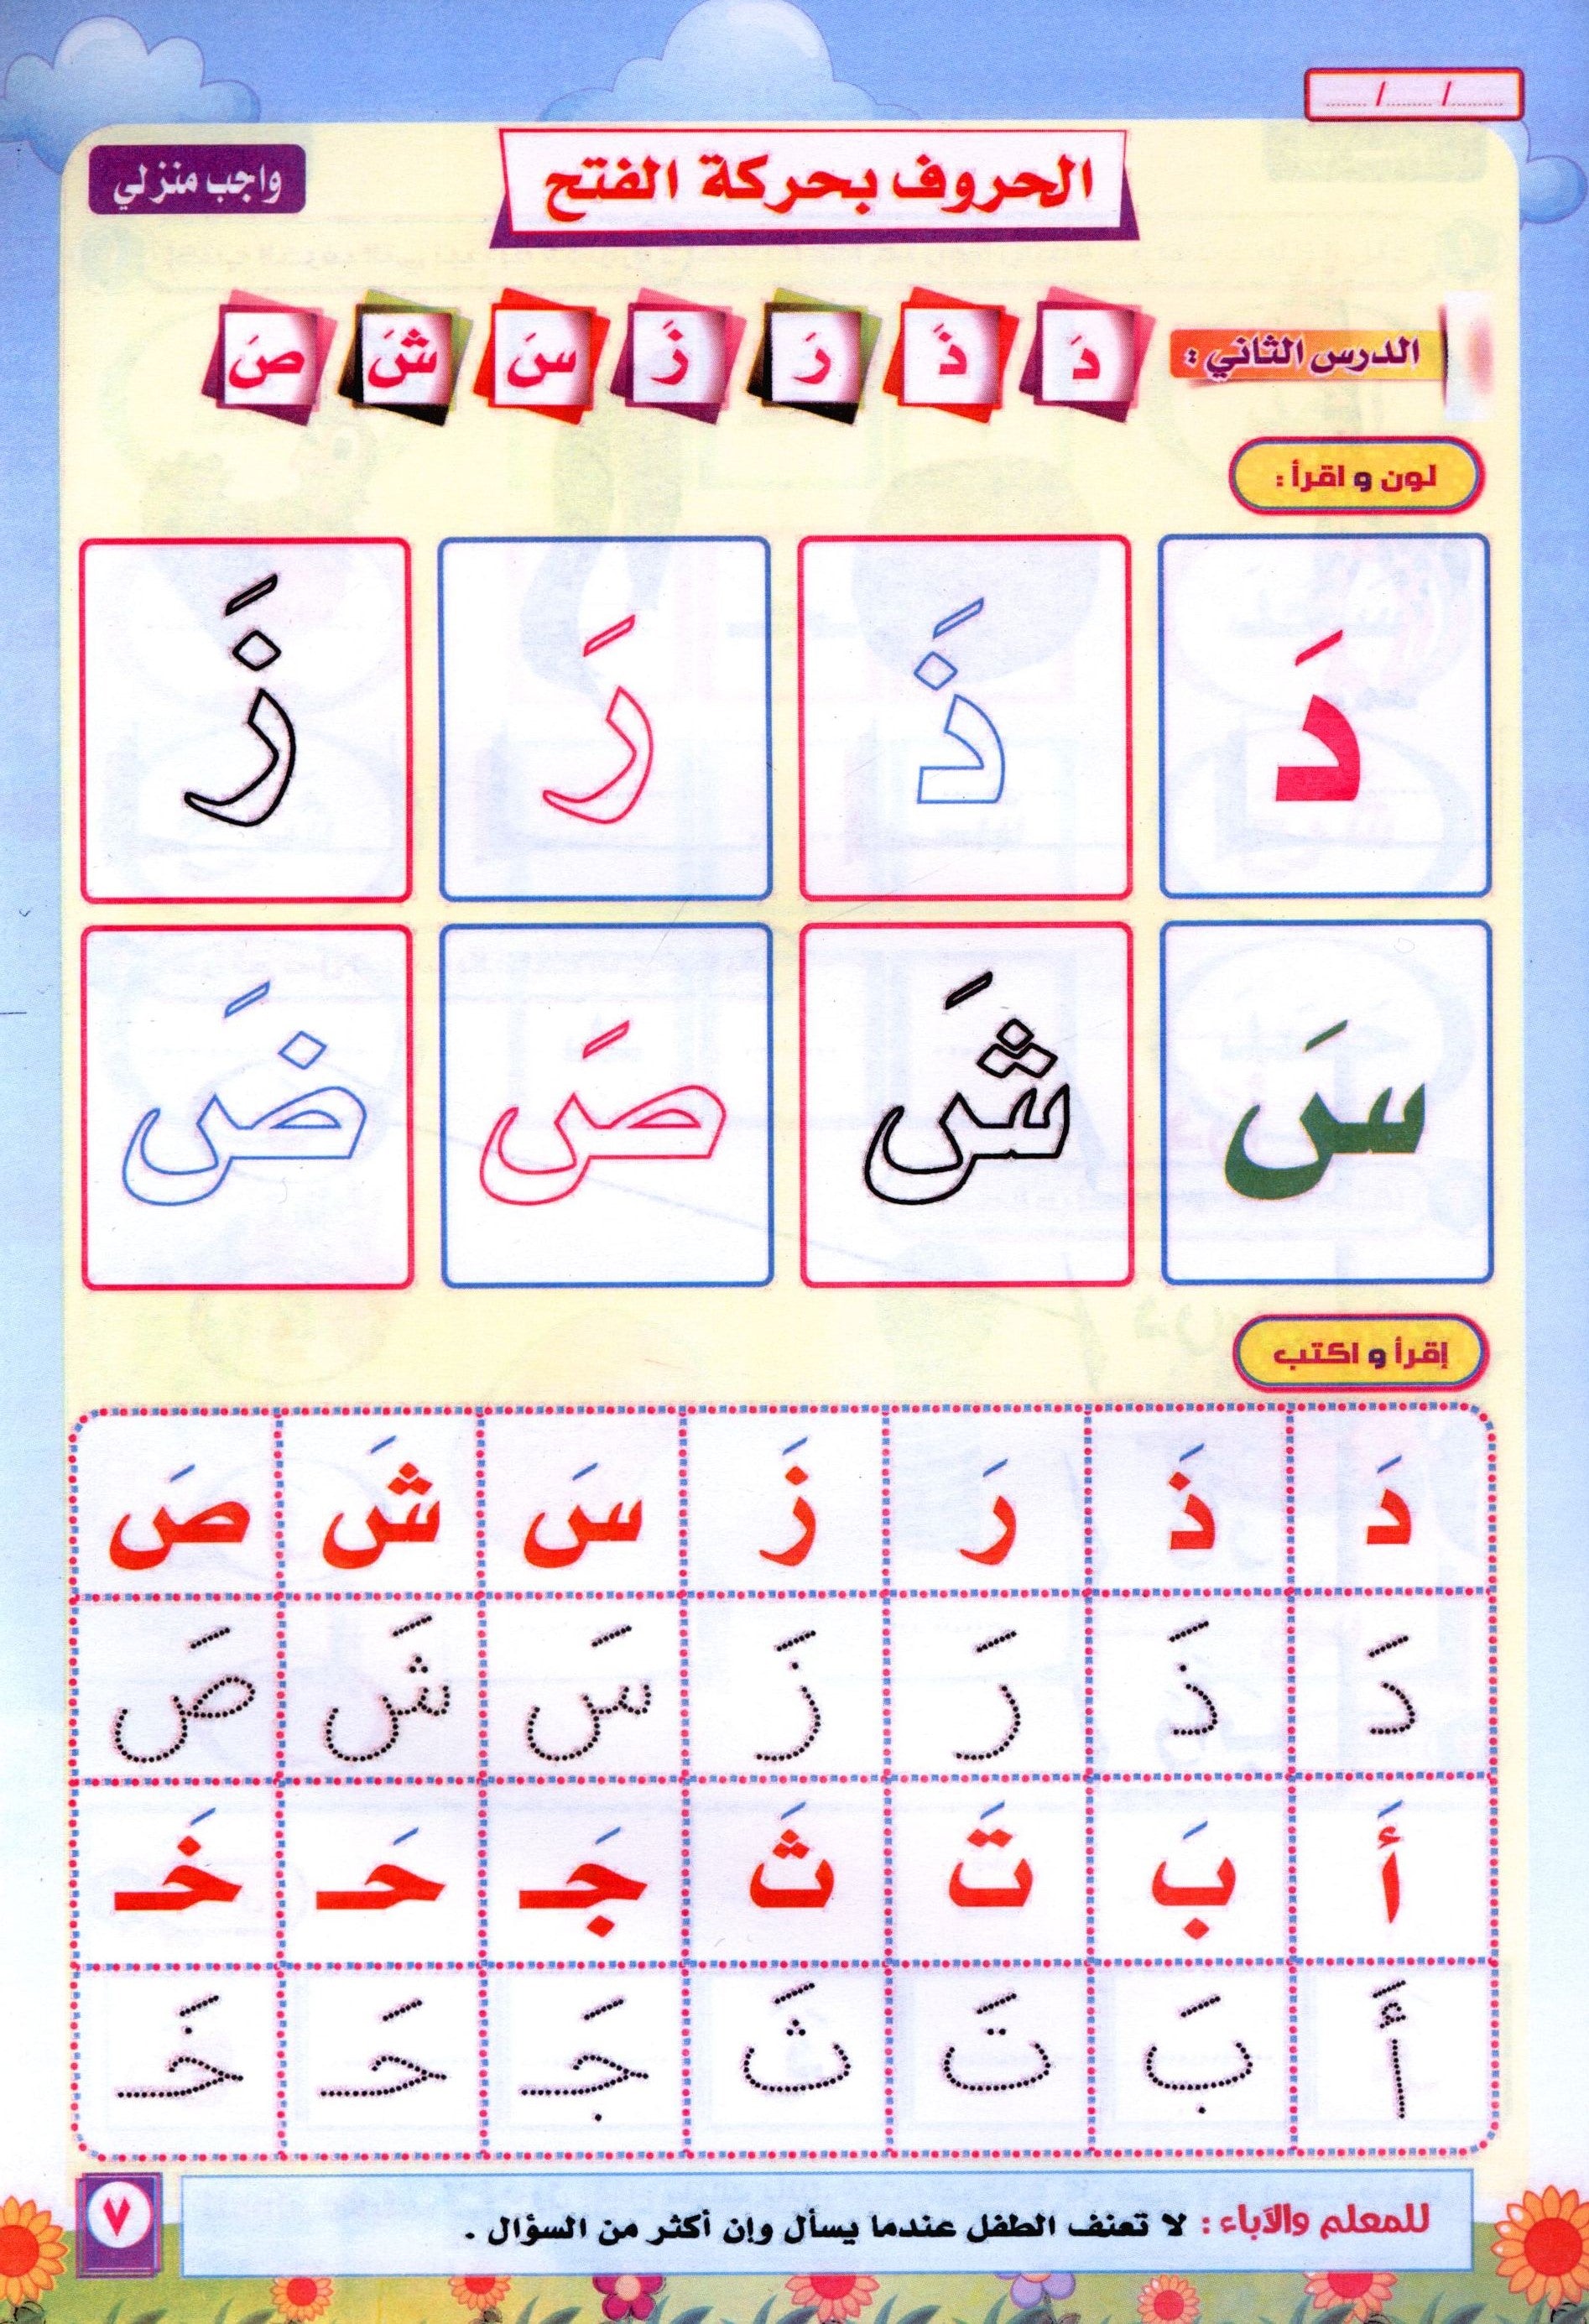 / /
الحروف بحركة الفتح
واجب منزلي
الدرس الثاني :
دَ ذَ رَ زَ سَ شَ صَ
لون و اقرأ :
دَ ذَ رَ زَ
سَ شَ صَ ضَ
إقرأ و اكتب
دَ ذَ رَ زَ سَ شَ صَ
دَ ذَ رَ زَ سَ شَ صَ
أَ بَ تَ ثَ جَـ حَـ خَـ
أَ بَ تَ ثَ جَـ حَـ خَـ
للمعلم والآباء : لا تعنف الطفل عندما يسأل وإن أكثر من السؤال .
٧